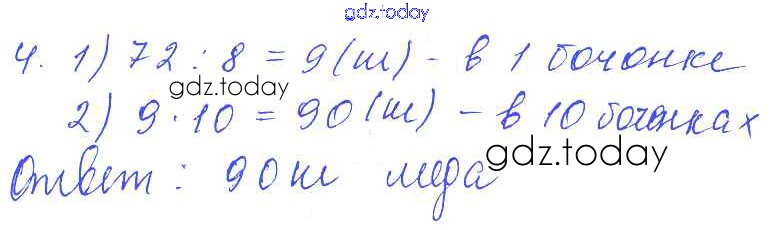 gdz.today
4. 1) 72 : 8 = 9 (ш) - в 1 бочонке
gdz.today
2) 9 · 10 = 90 (ш) - в 10 бочонках
gdz.today
Ответ : 90 ш меда